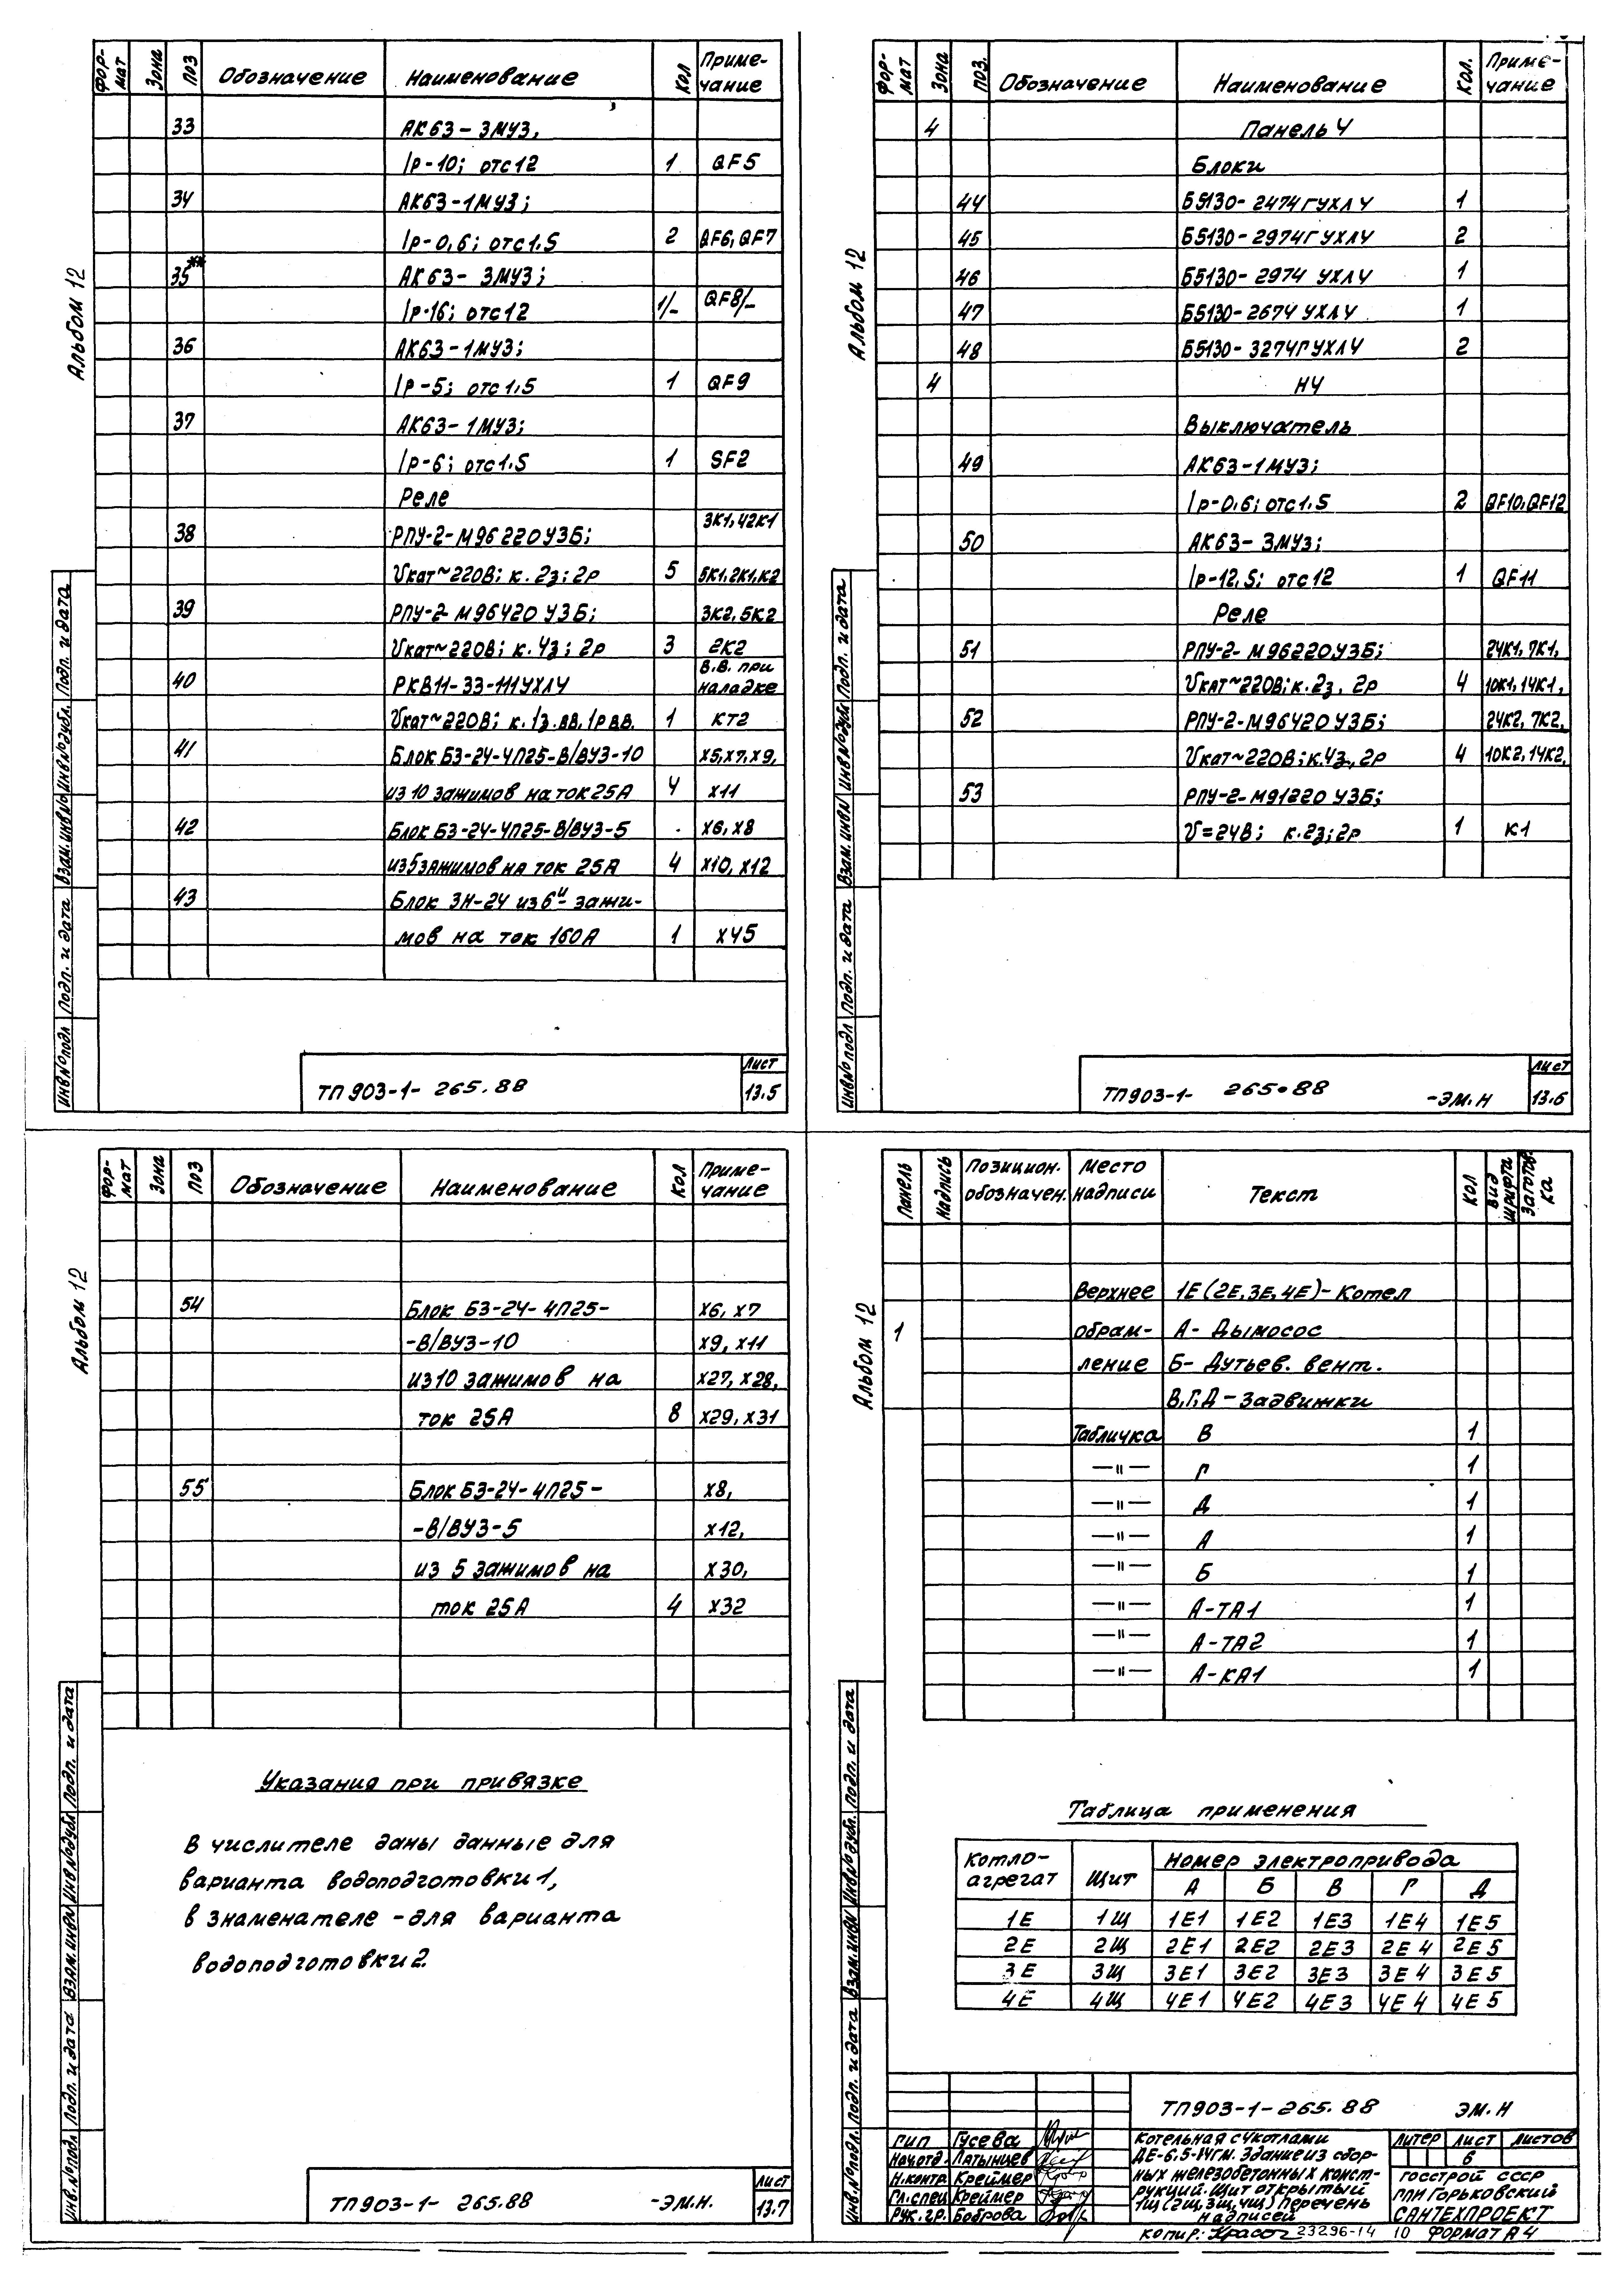 Альбом 12
Фор-мат Зона Поз Обозначение Наименование Кол Приме-чание
33 АК63-3МУ3,
Iр-10; отс12 1 QF5
34 АК63-1МУ3;
Iр-0,6; отс1.5 2 QF6, QF7
35** АК63-3МУ3;
Iр-16; отс12 1/- QF8/-
36 АК63-1МУ3;
Iр-5; отс1.5 1 QF9
37 АК63-1МУ3;
Iр-6; отс1.5 1 SF2
Реле
38 РПУ-2-М96220У3Б; 3К1, 42К1
Uкат~220В; к.2з; 2р 5 5К1, 2К1, К2
39 РПУ-2-М96420У3Б; 3К2, 5К2
Uкат~220В; к.4з; 2р 3 2К2
40 РКВ11-33-111УХЛ4 В.В. при наладке
Uкат~220В; к.1з.вв, 1р вв. 1 КТ2
41 Блок Б3-24-4П25-В/ВУ3-10 Х5, Х7, Х9,
из 10 зажимов на ток 25А 4 Х11
42 Блок Б3-24-4П25-В/ВУ3-5 Х6, Х8
из 5 зажимов на ток 25А 4 Х10, Х12
43 Блок ЗН-24 из 6и зажи-
мов на ток 160А 1 Х45
Инв№подл Подп. и дата Взам.инв№ Инв№дубл. Подп. и дата
ТП903-1- 265.88
Лист
13.5
Альбом 12
Фор-мат Зона Поз. Обозначение Наименование Кол. Приме-чание
4 Панель 4
Блоки
44 Б5130-2474ГУХЛ4 1
45 Б5130-2974ГУХЛ4 2
46 Б5130-2974 УХЛ4 1
47 Б5130-2674 УХЛ4 1
48 Б5130-3274ГУХЛ4 2
4 Н4
Выключатель
49 АК63-1МУ3;
Iр-0,6; отс1.5 2 QF10, QF12
50 АК63-3МУ3;
Iр-12,5; отс12 1 QF11
Реле
51 РПУ-2-М96220У3Б; 24К1, 7К1,
Uкат~220В; к.2з, 2р 4 10К1, 14К1,
52 РПУ-2-М96420У3Б; 24К2, 7К2,
Uкат~220В; к.4з, 2р 4 10К2, 14К2,
53 РПУ-2-М91220 У3Б;
U=24В; к.2з; 2р 1 К1
Инв№подл Подп. и дата Взам.инв№ Инв№дубл Подп. и дата
ТП903-1- 265.88 -ЭМ.Н
Лист
13.6
Альбом 12
Фор-мат Зона Поз Обозначение Наименование Кол Приме-чание
54 Блок Б3-24-4П25- Х6, Х7
-В/ВУ3-10 Х9, Х11
из 10 зажимов на Х27, Х28,
ток 25А 8 Х29, Х31
55 Блок Б3-24-4П25- Х8,
-В/ВУ3-5 Х12,
из 5 зажимов на Х30,
ток 25А 4 Х32
Указания при привязке
В числителе даны данные для
варианта водоподготовки 1,
в знаменателе - для варианта
водоподготовки 2.
Инв.№подл Подп. и дата Взам.инв№ Инв№дубл Подп. и дата
ТП903-1- 265.88 -ЭМ.Н.
Лист
13.7
Альбом 12
Панель Надпись Позицион. обозначен. Место надписи Текст Кол Вид шрифта Заготов.ка
Верхнее 1Е (2Е, 3Е, 4Е) - Котел
1 обрам- А - Дымосос
ление Б - Дутьев. вент.
В, Г, Д - Задвижки
Табличка В 1
—"— Г 1
—"— Д 1
—"— А 1
—"— Б 1
—"— А-ТА1 1
—"— А-ТА2 1
—"— А-КА1 1
Таблица применения
Котло-агрегат Щит Номер электропривода
А Б В Г Д
1Е 1Щ 1Е1 1Е2 1Е3 1Е4 1Е5
2Е 2Щ 2Е1 2Е2 2Е3 2Е4 2Е5
3Е 3Щ 3Е1 3Е2 3Е3 3Е4 3Е5
4Е 4Щ 4Е1 4Е2 4Е3 4Е4 4Е5
Инв.№подл. Подп. и дата Взам.инв№ Инв№дубл. Подп. и дата
ТП903-1-265.88 ЭМ.Н
ГИП Гусева
Нач.отд. Латынцев
Н.контр. Креймер
Гл.спец Креймер
Рук.гр. Боброва
Котельная с 4 котлами
ДЕ-6.5-14ГМ. Здание из сбор-
ных железобетонных конст-
рукций. Щит открытый
1Щ (2Щ, 3Щ, 4Щ) Перечень
надписей
Литер Лист Листов
6
Госстрой СССР
ГПИ Горьковский
САНТЕХПРОЕКТ
Копир: 23296-14 10 Формат А4